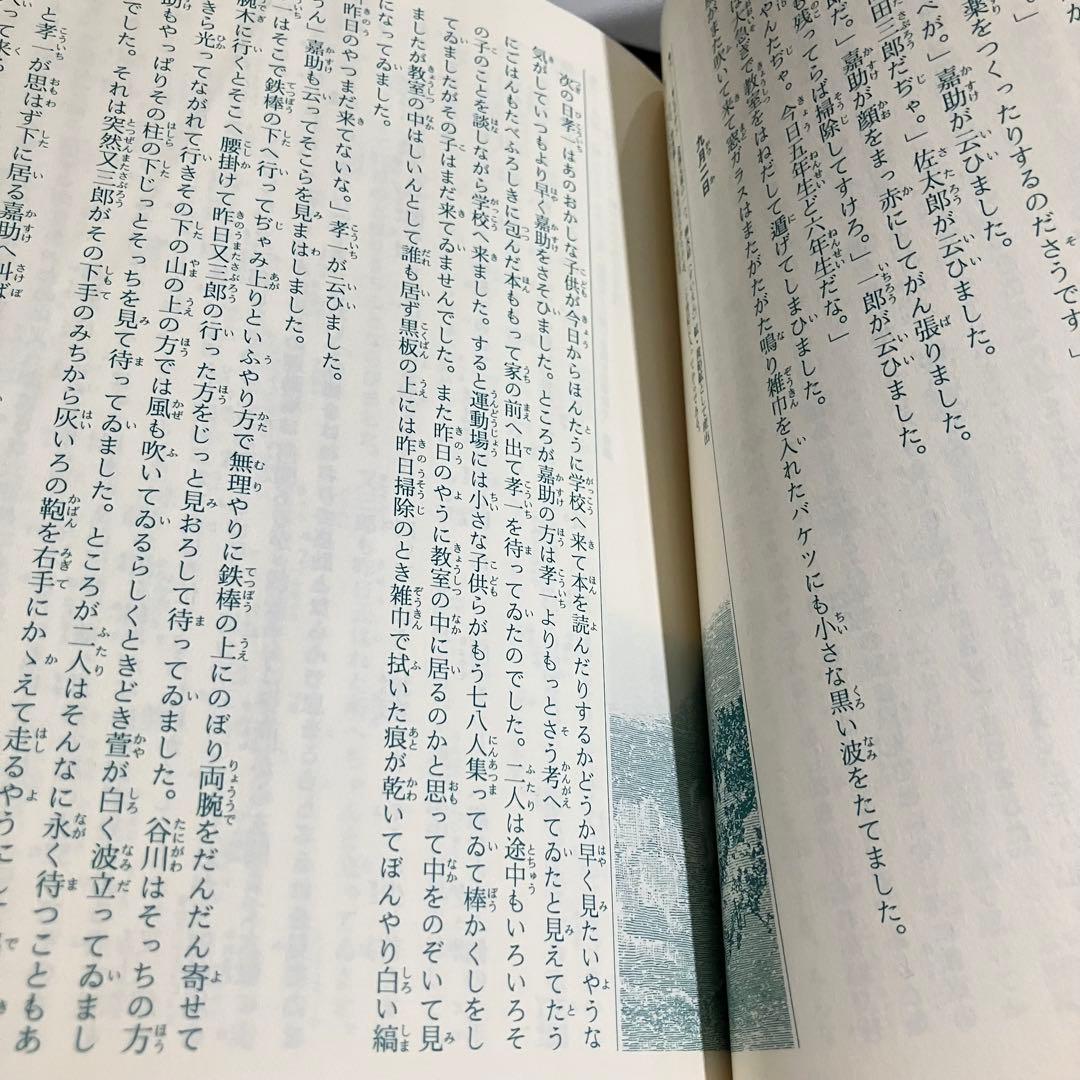 薬をつくったりするのださうです。」
べが。」嘉助が云ひました。
田三郎だぢゃ。」佐太郎が云ひました。
だ。」嘉助が顔をまっ赤にしてがん張りました。
も残ってらば掃除してすけろ。」一郎が云ひました。
やんたぢゃ。今日五年生ど六年生だな。」
は大急ぎで教室をはねだして遁げてしまひました。
がまた吹いて来て窓ガラスはまたがたがた鳴り雑巾を入れたバケツにも小さな黒い波をたてました。
九月二日
次の日孝一はあのおかしな子供が今日からほんたうに学校へ来て本を読んだりするかどうか早く見たいやうな
気がしていつもより早く嘉助をさそひました。ところが嘉助の方は孝一よりもっとさう考へてゐたと見えてたう
にごはんもたべふろしきに包んだ本ももって家の前へ出て孝一を待ってゐたのでした。二人は途中もいろいろそ
の子のことを談しながら学校へ来ました。すると運動場には小さな子供らがもう七八人集ってゐて棒かくしをし
てゐましたがその子はまだ来てゐませんでした。また昨日のやうに教室の中に居るのかと思って中をのぞいて見
ましたが教室の中はしいんとして誰も居ず黒板の上には昨日掃除のとき雑巾で拭いた痕が乾いてぼんやり白い縞
になってゐました。
昨日のやつまだ来てないな。」孝一が云ひました。
うん」嘉助も云ってそこらを見まはしました。
一はそこで鉄棒の下へ行ってぢゃみ上りといふやり方で無理やりに鉄棒の上にのぼり両腕をだんだん寄せて
腕木に行くとそこへ腰掛けて昨日又三郎の行った方をじっと見おろして待ってゐました。谷川はそっちの方
きら光ってながれて行きその下の山の上の方では風も吹いてゐるらしくときどき萱が白く波立ってゐまし
助もやっぱりその柱の下じっとそっちを見て待ってゐました。ところが二人はそんなに永く待つこともあ
でした。それは突然又三郎がその下手のみちから灰いろの鞄を右手にかゝえて走るやうにし
と孝一が思はず下に居る嘉助へ叫ば
って来る